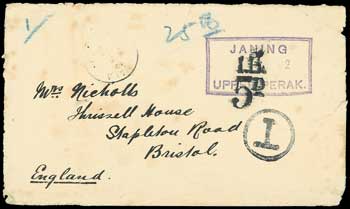 1/
25
JANING
2
UPPER PERAK.
5D
T
Mrs Nicholls
Thrissell House
Stapleton Road
Bristol.
England.